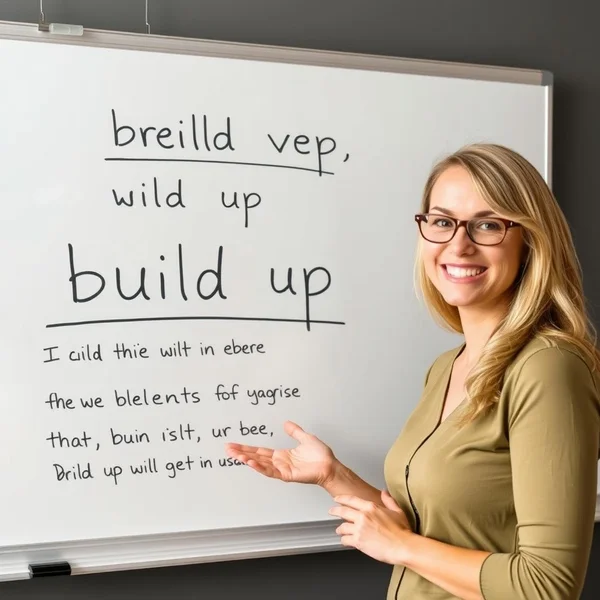 breilld vep,
wild up
build up
I cuild thie wilt in ebere
fhe we blelents fof yagrise
that, buin islt, ur bee,
Drild up will get in